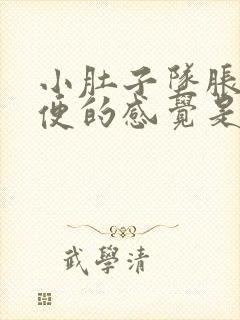 小肚子墜脹
便的感覺是
武學清